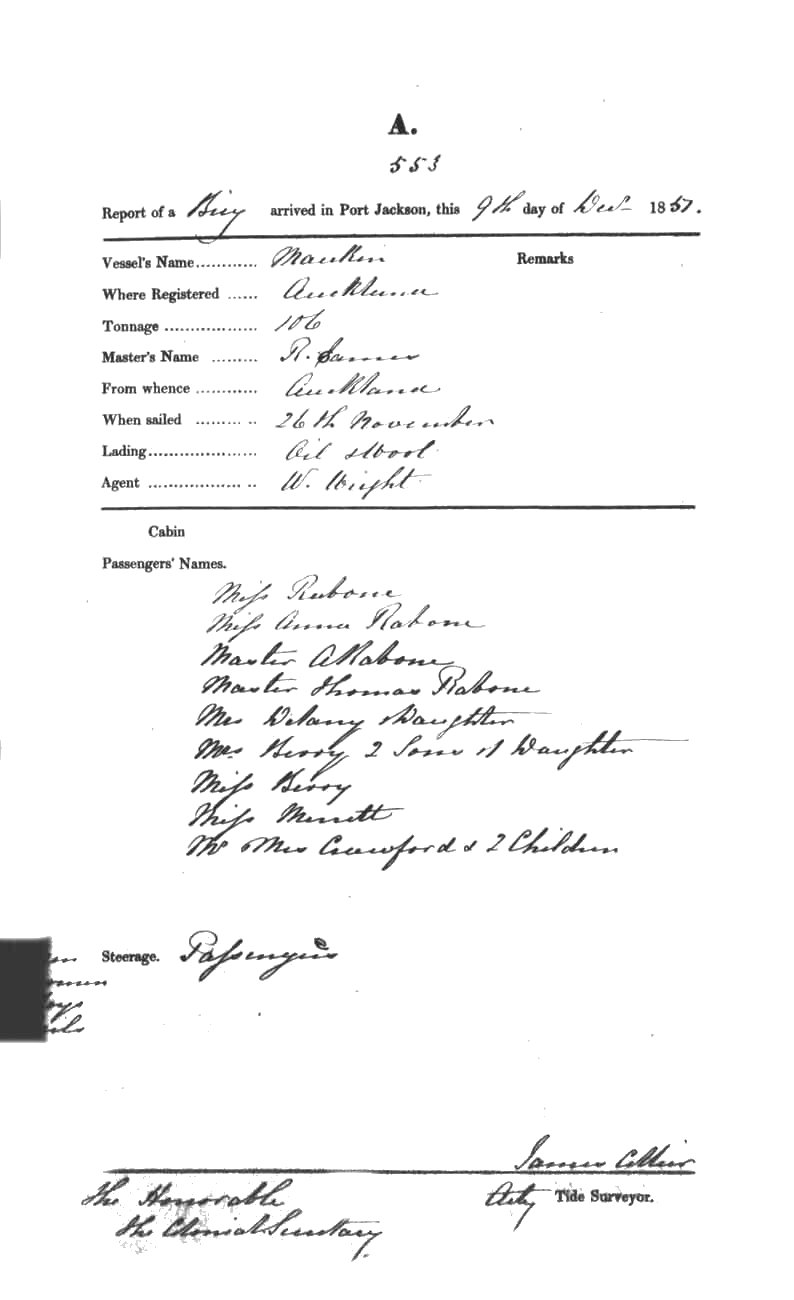 A.
553
Report of a Brig arrived in Port Jackson, this 9th day of Decr 1851.
Vessel's Name............ Maukin Remarks
Where Registered ...... Auckland
Tonnage .................. 106
Master's Name ......... R. James
From whence ............ Auckland
When sailed ......... .. 26th November
Lading...................... Oil & Wool
Agent .................. .. W. Wright
Cabin
Passengers' Names.
Miss Rabone
Miss Anna Rabone
Master A Rabone
Master Thomas Rabone
Mrs Delany & Daughter
Mrs Berry 2 Sons & 1 Daughter
Miss Berry
Miss Merrett
Mr & Mrs Crawford & 2 Children
Steerage. Passengers
James
Actg Tide Surveyor.
The Honorable
The Colonial Secretary